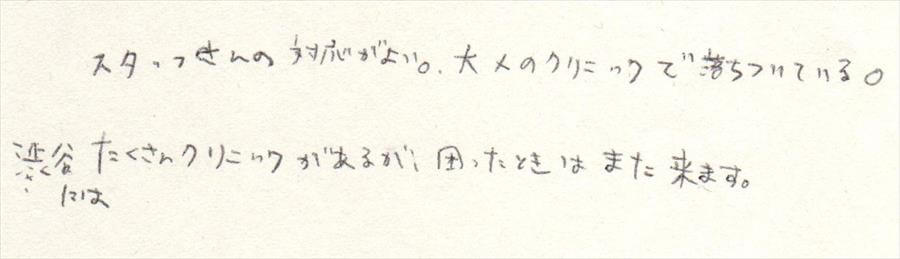 スタッフさんの対応がよい。大メのクリニックで落ちついている。
渋谷にはたくさんクリニックがあるが、困ったときはまた来ます。